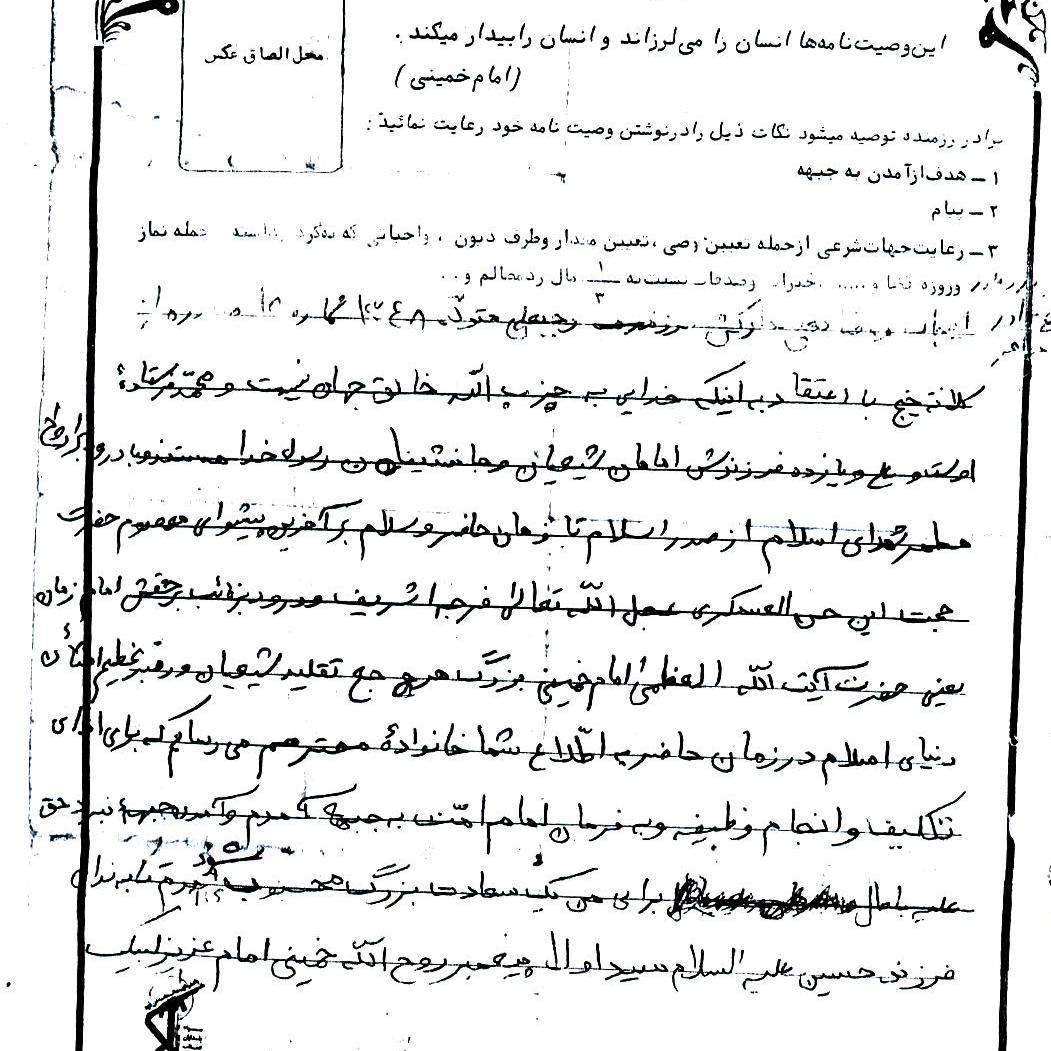 این وصیت‌نامه‌ها انسان را می‌لرزاند و انسان را بیدار میکند .
محل الصاق عکس
(امام خمینی)
برادر رزمنده توصیه میشود نکات ذیل را در نوشتن وصیت نامه خود رعایت نمائید :
۱ ـ هدف از آمدن به جبهه
۲ ـ پیام
۳ ـ رعایت جهات شرعی از جمله تعیین وصی ، تعیین مقدار وطرف دیون ، واجباتی که جمله نماز
وروزه قضا و..... خیرات وصدقات نسبت به ۱/۳ مال رد مظالم و ..
اینجانب فرزند متولد ۱۳۴۸ شماره
با اعتقاد به اینکه خدایی به جز الله خالق جهان نیست و محمد فرستادهٔ
اوست و علی و یازده فرزندش امامان شیعیان و جانشینان رسول خدا هستند و با درود بر ارواح
مطهر شهدای اسلام از صدر اسلام تا زمان حاضر و سلام بر آخرین پیشوای معصوم حضرت
حجت ابن حسن العسکری عجل الله تعالی فرجه الشریف و درود بر نائب برحقش امام زمان
یعنی حضرت آیت الله العظمی امام خمینی بزرگ مرجع تقلید شیعیان و رهبر عظیم الشأن
دنیای اسلام در زمان حاضر به اطّلاع شما خانوادهٔ محترم می رسانم که برای ادای
تکلیف و انجام وظیفه و به فرمان امام امّت به جبهه آمدم و آمدن جبههٔ نبرد حق
علیه باطل برای من یک سعادت بزرگ محسوب میشود تا به ندای
فرزند حسین علیه السلام سید اولاد پیغمبر روح الله خمینی امام عزیز لبیک